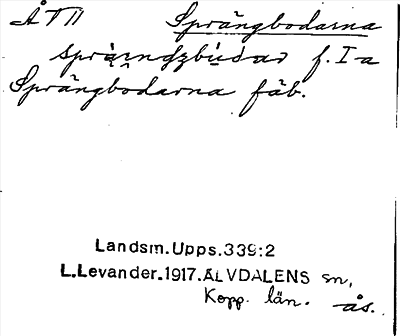 Å T II Sprängbodarna
f. I a
Sprängbodarna fäb.
Landsm. Upps. 339:2
L. Levander. 1917. ÄLVDALENS sn,
Kopp. län. ås.